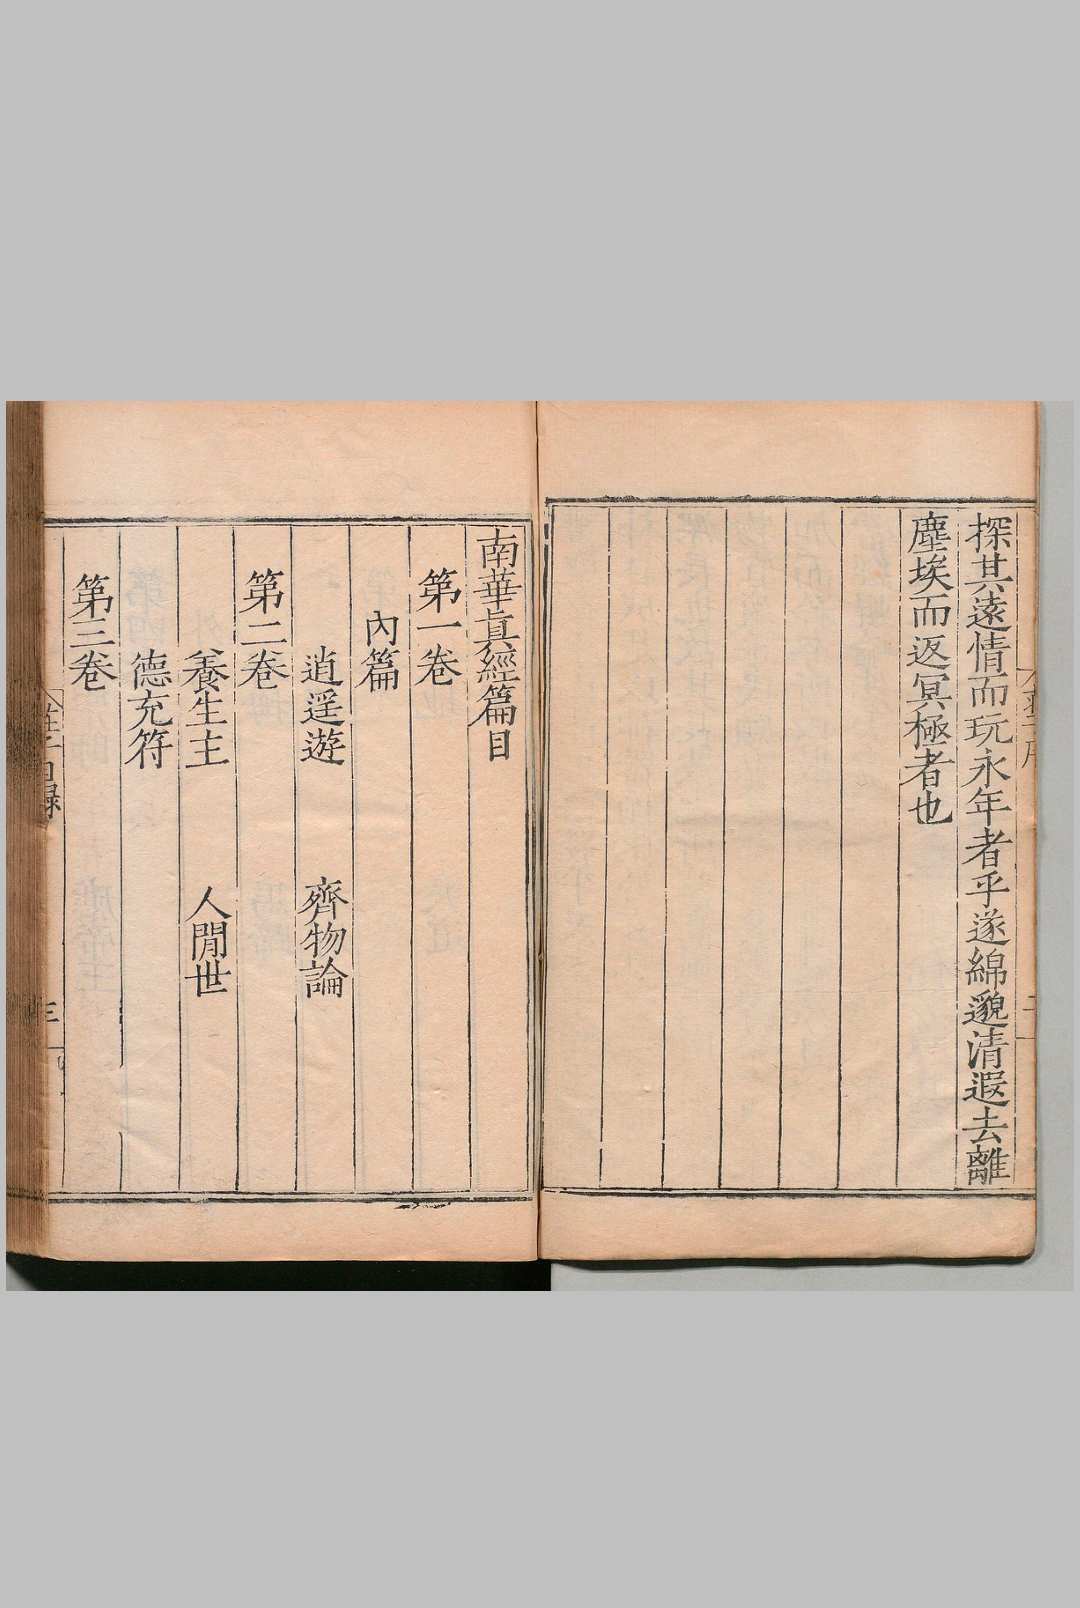 探其遠情而玩永年者乎遂綿邈清遐去離
塵埃而返冥極者也
南華眞經篇目
第一卷
內篇
逍遥遊 齊物論
第二卷
養生主 人閒世
德充符
第三卷